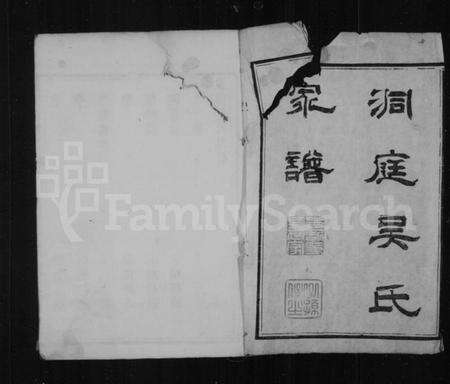 洞庭吴氏
家譜
FamilySearch